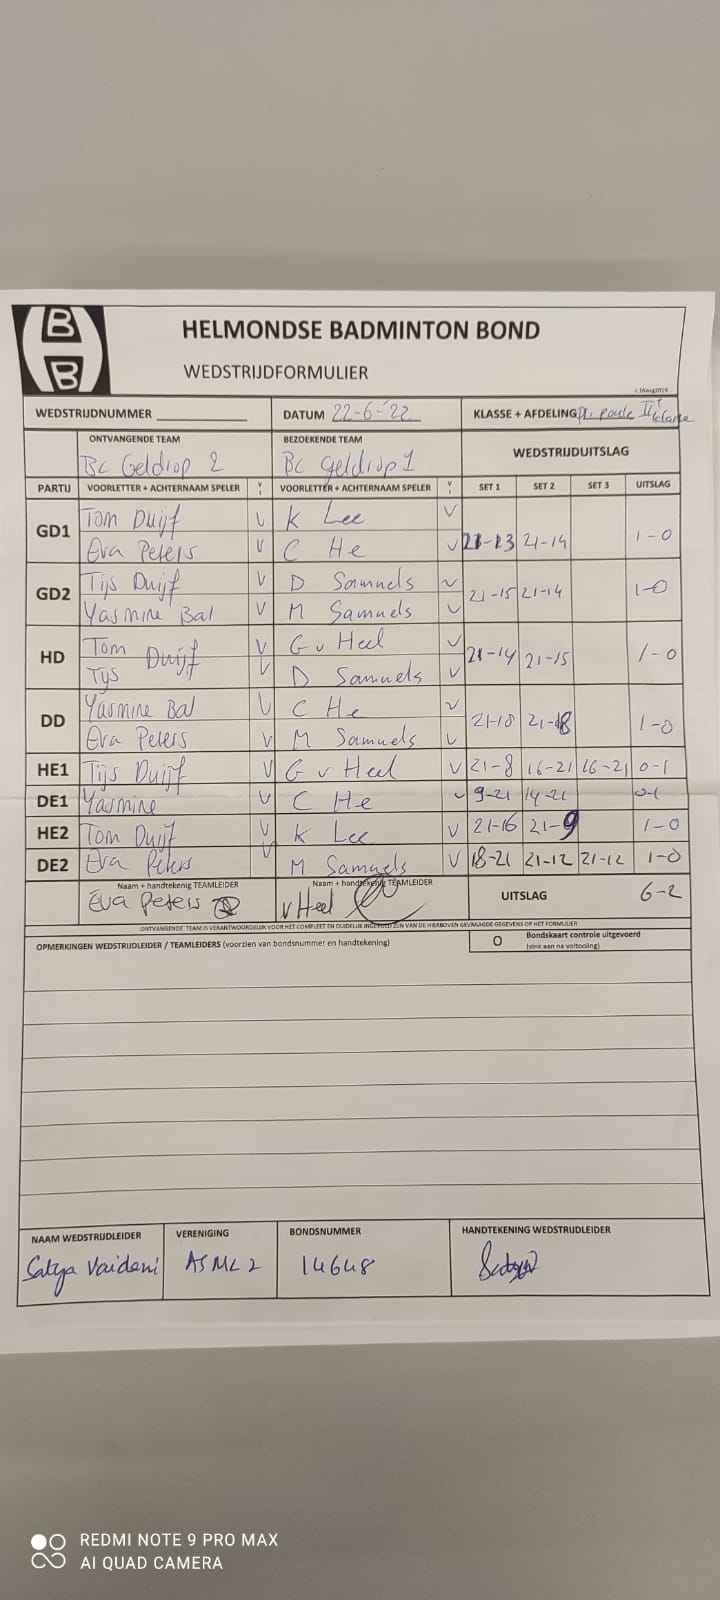 B
B
HELMONDSE BADMINTON BOND
WEDSTRIJDFORMULIER
WEDSTRIJDNUMMER
DATUM 22-6-'22
KLASSE + AFDELING
ONTVANGENDE TEAM
Bc Geldrop 2
BEZOEKENDE TEAM
Bc geldrop 1
WEDSTRIJDUITSLAG
PARTIJ VOORLETTER + ACHTERNAAM SPELER V VOORLETTER + ACHTERNAAM SPELER V SET 1 SET 2 SET 3 UITSLAG
GD1
Tom Duijf V K Lee V
Eva Peters V C He V 21-13 21-14 1-0
GD2
Tijs Duijf V D Samuels V
Yasmine Bal V M Samuels V 21-15 21-14 1-0
HD
Tom Duijf V G v Heel V
Tijs V D Samuels V 21-14 21-15 1-0
DD
Yasmine Bal V C He V
Eva Peters V M Samuels V 21-18 21-18 1-0
HE1 Tijs Duijf V G v Heel V 21-8 16-21 16-21 0-1
DE1 Yasmine V C He V 9-21 14-21 0-1
HE2 Tom Duijf V K Lee V 21-16 21-9 1-0
DE2 Eva Peters V M Samuels V 18-21 21-12 21-12 1-0
Naam + handtekenig TEAMLEIDER
Eva Peters
Naam + handtekenig TEAMLEIDER
v Heel
UITSLAG 6-2
ONTVANGENDE TEAM IS VERANTWOORDELIJK VOOR HET COMPLEET EN DUIDELIJK INGEVULD ZIJN VAN DE HIERBOVEN GEVRAAGDE GEGEVENS OP HET FORMULIER
OPMERKINGEN WEDSTRIJDLEIDER / TEAMLEIDERS (voorzien van bondsnummer en handtekening)
O Bondskaart controle uitgevoerd
(vink aan na voltooiing)
NAAM WEDSTRIJDLEIDER
Satya Vaideni
VERENIGING
ASML 2
BONDSNUMMER
14648
HANDTEKENING WEDSTRIJDLEIDER
REDMI NOTE 9 PRO MAX
AI QUAD CAMERA